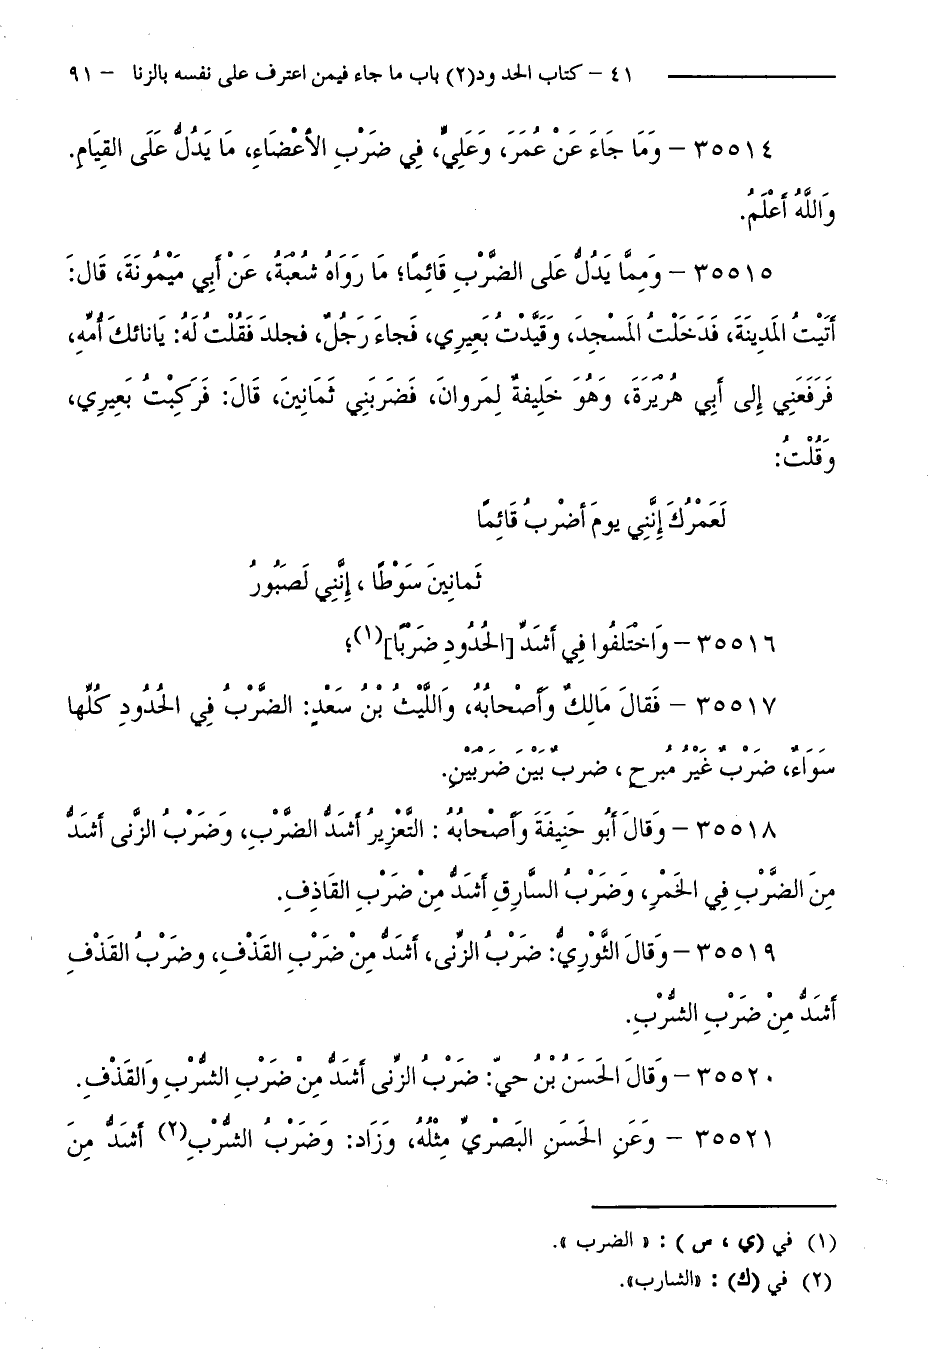 ٤١ – كتاب الحدود (٢) باب ما جاء فيمن اعترف على نفسه بالزنا – ٩١
٣٥٥١٤ – وَمَا جَاءَ عَنْ عُمَرَ، وَعَلِيٍّ، فِي ضَرْبِ الأَعْضَاءِ، مَا يَدُلُّ عَلَى القِيَامِ.
وَاللَّهُ أَعْلَمُ.
٣٥٥١٥ – وَمِمَّا يَدُلُّ عَلى الضَّرْبِ قَائِمًا؛ مَا رَوَاهُ شُعْبَةُ، عَنْ أَبِي مَيْمُونَةَ، قَالَ:
أَتَيْتُ المَدِينَةَ، فَدَخَلْتُ المَسْجِدَ، وَقَيَّدْتُ بَعِيرِي، فَجاءَ رَجُلٌ، فجلدَ فَقُلْتُ لَهُ: يَانائكَ أُمِّهِ،
فَرَفَعَنِي إِلى أَبِي هُرَيْرَةَ، وَهُوَ خَلِيفةٌ لِمَروانَ، فَضَرَبَنِي ثَمَانِينَ، قَالَ: فَرَكِبْتُ بَعِيرِي،
وَقُلْتُ:
لَعَمْرُكَ إِنَّنِي يومَ أضْربُ قَائِمًا
ثَمانِينَ سَوْطًا ، إِنَّنِي لَصَبُورُ
٣٥٥١٦ – وَاخْتَلَفُوا فِي أَشَدِّ [الحُدُودِ ضَرْبًا](١)؛
٣٥٥١٧ – فَقالَ مَالِكٌ وَأَصْحابُهُ، وَاللَّيْثُ بْنُ سَعْدٍ: الضَّرْبُ فِي الحُدُودِ كُلِّها
سَوَاءٌ، ضَرْبٌ غَيْرُ مُبرحٍ ، ضربٌ بَيْنَ ضَرْبَيْنِ.
٣٥٥١٨ – وَقالَ أَبُو حَنِيفَةَ وَأَصْحابُهُ : التَّعْزِيرُ أَشَدُّ الضَّرْبِ، وَضَرْبُ الزِّنى أَشَدُّ
مِنَ الضَّرْبِ فِي الخَمْرِ، وَضَرْبُ السَّارِقِ أَشَدُّ مِنْ ضَرْبِ القَاذِفِ.
٣٥٥١٩ – وَقالَ الثَّوْرِيُّ: ضَرْبُ الزِّنى، أَشَدُّ مِنْ ضَرْبِ القَذْفِ، وضَرْبُ القَذْفِ
أَشَدُّ مِنْ ضَرْبِ الشُّرْبِ.
٣٥٥٢٠ – وَقالَ الحَسَنُ بْنُ حيٍّ: ضَرْبُ الزِّنى أَشَدُّ مِنْ ضَرْبِ الشُّرْبِ وَالقَذْفِ.
٣٥٥٢١ – وَعَنِ الحَسَنِ البَصْرِيِّ مِثْلُهُ، وَزَاد: وَضَرْبُ الشُّرْبِ(٢) أَشَدُّ مِنَ
(١) في (ي ، س) : « الضرب ».
(٢) في (ك) : «الشارب».